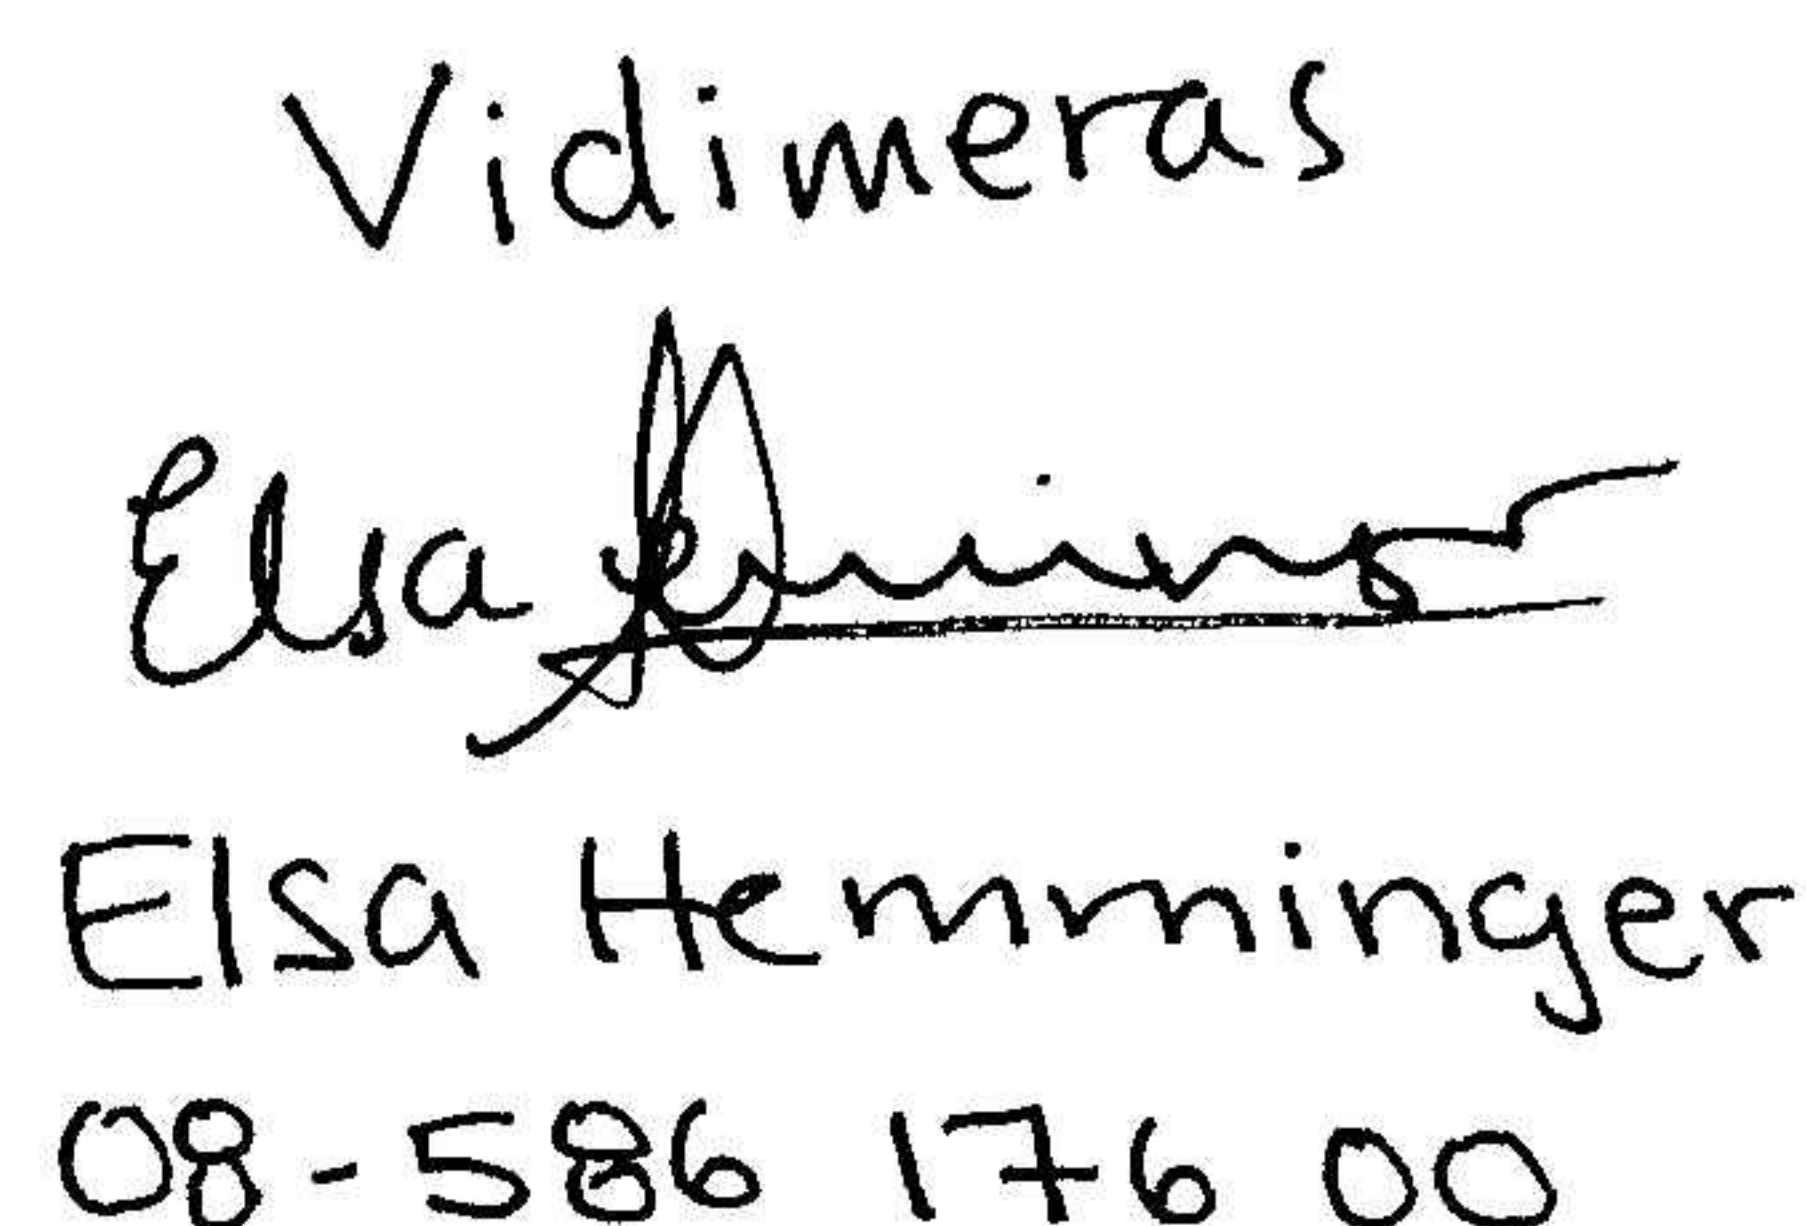 Vidimeras
Elsa
Elsa Hemminger
08-586 176 00